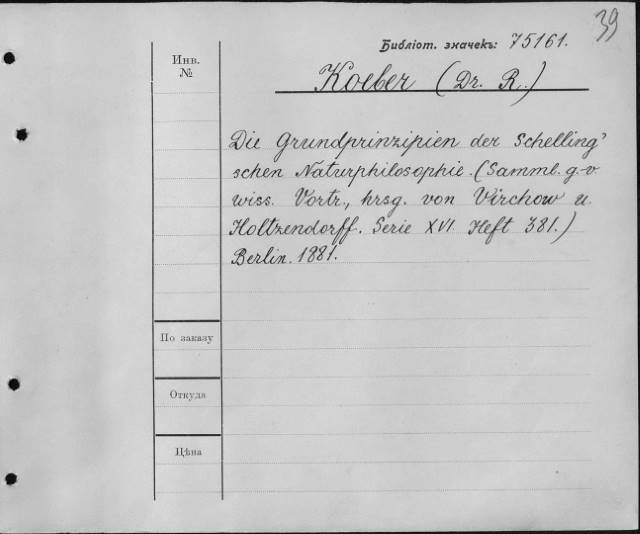 39
Библіот. значекъ: 75161.
Инв.
№
Koeber (Dr. R.)
Die Grundprinzipien der Schelling'
schen Naturphilosophie. (Samml. g.-v.
wiss. Vortr., hrsg. von Virchow u.
Holtzendorff. Serie XVI. Heft 381.)
Berlin. 1881.
По заказу
Откуда
Цѣна